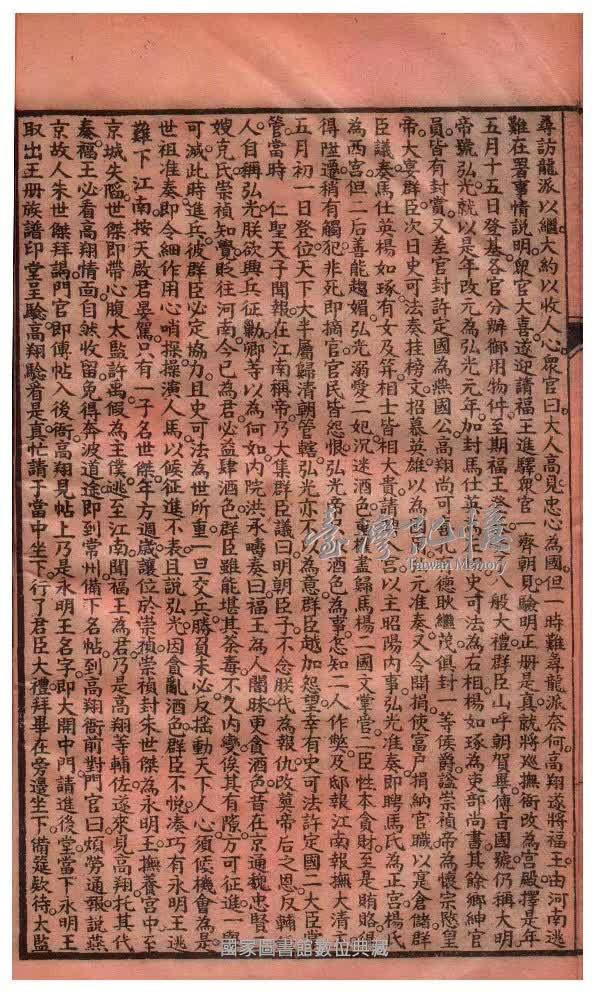 尋訪龍派以繼大約以收人心眾官曰大人高見忠心為國但一時難尋龍派奈何高翔遂將福王由河南逃
難在署事情說明眾官大喜遂迎請福王進驛眾官一齊朝見驗明正册是真就將巡撫衙改為宮殿擇是年
五月十五日登基各官分辦御用物件至期福王登 入般大禮群臣山呼朝賀畢傳旨國號仍稱大明
帝號弘光就以是年改元為弘光元年加封馬仕英 史可法為右相楊如琢為吏部尚書其餘鄉紳官
員皆有封賞又差官封許定國為燕國公高翔尚可 孔 德耿繼茂俱封一等侯爵謚崇禎帝為懷宗愍皇
帝大宴群臣次日史可法奏挂榜文招慕英雄以為 元准奏又令開捐使富戶捐納官職以寔倉儲群
臣議奏馬仕英楊如琢有女及笄相士皆相大貴請 入宮以主昭陽內事弘光准奏即聘馬氏為正宮楊氏
為西宮但二后善能趨媚弘光溺愛二妃沉迷酒色 盡歸馬楊二國丈掌管二臣性本貪財至是賄賂得
得陞遷稍有觸犯非死即摘官官民皆怨恨弘光帝 酒色為事志知二人作弊及邸報江南報撫大清
五月初一日登位天下大半屬歸清朝管轄弘光亦不以為意群臣越加怨望幸有史可法許定國二大臣掌
管當時 仁聖天子聞報在江南稱帝乃大集群臣議曰明朝臣子不念朕代為報仇改塟帝后之恩反輔
人自稱弘光朕欲興兵征勦卿等以為何如內院洪承疇奏曰福王為人闇昧更貪酒色昔在京通魏忠賢
嫂克氏崇禎知覺貶往河南今已為君必益肆酒色群臣雖能堪其荼毒不久內變俟其有隙方可征進一舉
可滅此時進兵彼群臣必定協力且史可法為世所重一旦交兵勝負未必反搖動天下人心須候機會為是
世祖准奏即令細作用心哨探操演人馬以候征進不表且說弘光因貪亂酒色群臣不悅湊巧有永明王逃
難下江南按天啟君晏駕只有一子名世傑年方週歲讓位於崇禎崇禎封朱世傑為永明王撫養宮中至
京城失陷世傑即帶心腹太監許禹假為王僕逃至江南聞福王為君乃是高翔等輔佐遂來見高翔托其代
奏福王必看高翔情面自然收留免得奔波道途即到常州備下名帖到高翔衙前對門官曰煩勞通報說燕
京故人朱世傑拜謁門官即傳帖入後衙高翔見帖上乃是永明王名字即大開中門請進後堂當下永明王
取出王册族譜印堂呈驗高翔驗看是真忙請于當中坐下行了君臣大禮拜畢在旁邊坐下備筵欵待太監
臺灣記憶
Taiwan Memory
國家圖書館數位典藏